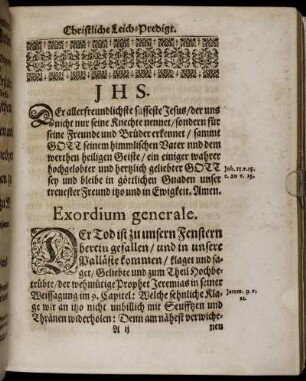 Christliche Leich-Predigt.
JHS.
DEr allerfreundlichste süsseste Jesus/der uns
nicht nur seine Knechte nennet/sondern für
seine Freunde und Brüder erkennet/ sammt
GOTT seinem himmlischen Vater und dem
werthen heiligen Geiste/ ein einiger wahrer
hochgelobter und hertzlich geliebter GOTT
sey und bleibe in göttlichen Gnaden unser
treuester Freund itzo und in Ewigkeit. Amen.
Joh. 15. v. 15.
c. 20 v. 15.
Exordium generale.
DEr Tod ist zu unsern Fenstern
herein gefallen/ und in unsere
Palläste kommen/ klaget und sa-
get/ Geliebte und zum Theil Hochbe-
trübte/ der wehmütige Prophet Jeremias in seiner
Weissagung im 9. Capitel: Welche sehnliche Kla-
ge wir an itzo nicht unbillich mit Seufftzen und
Thränen widerholen: Denn am nähest verwiche-
Jerem. 9. v.
21.
A ij
nen